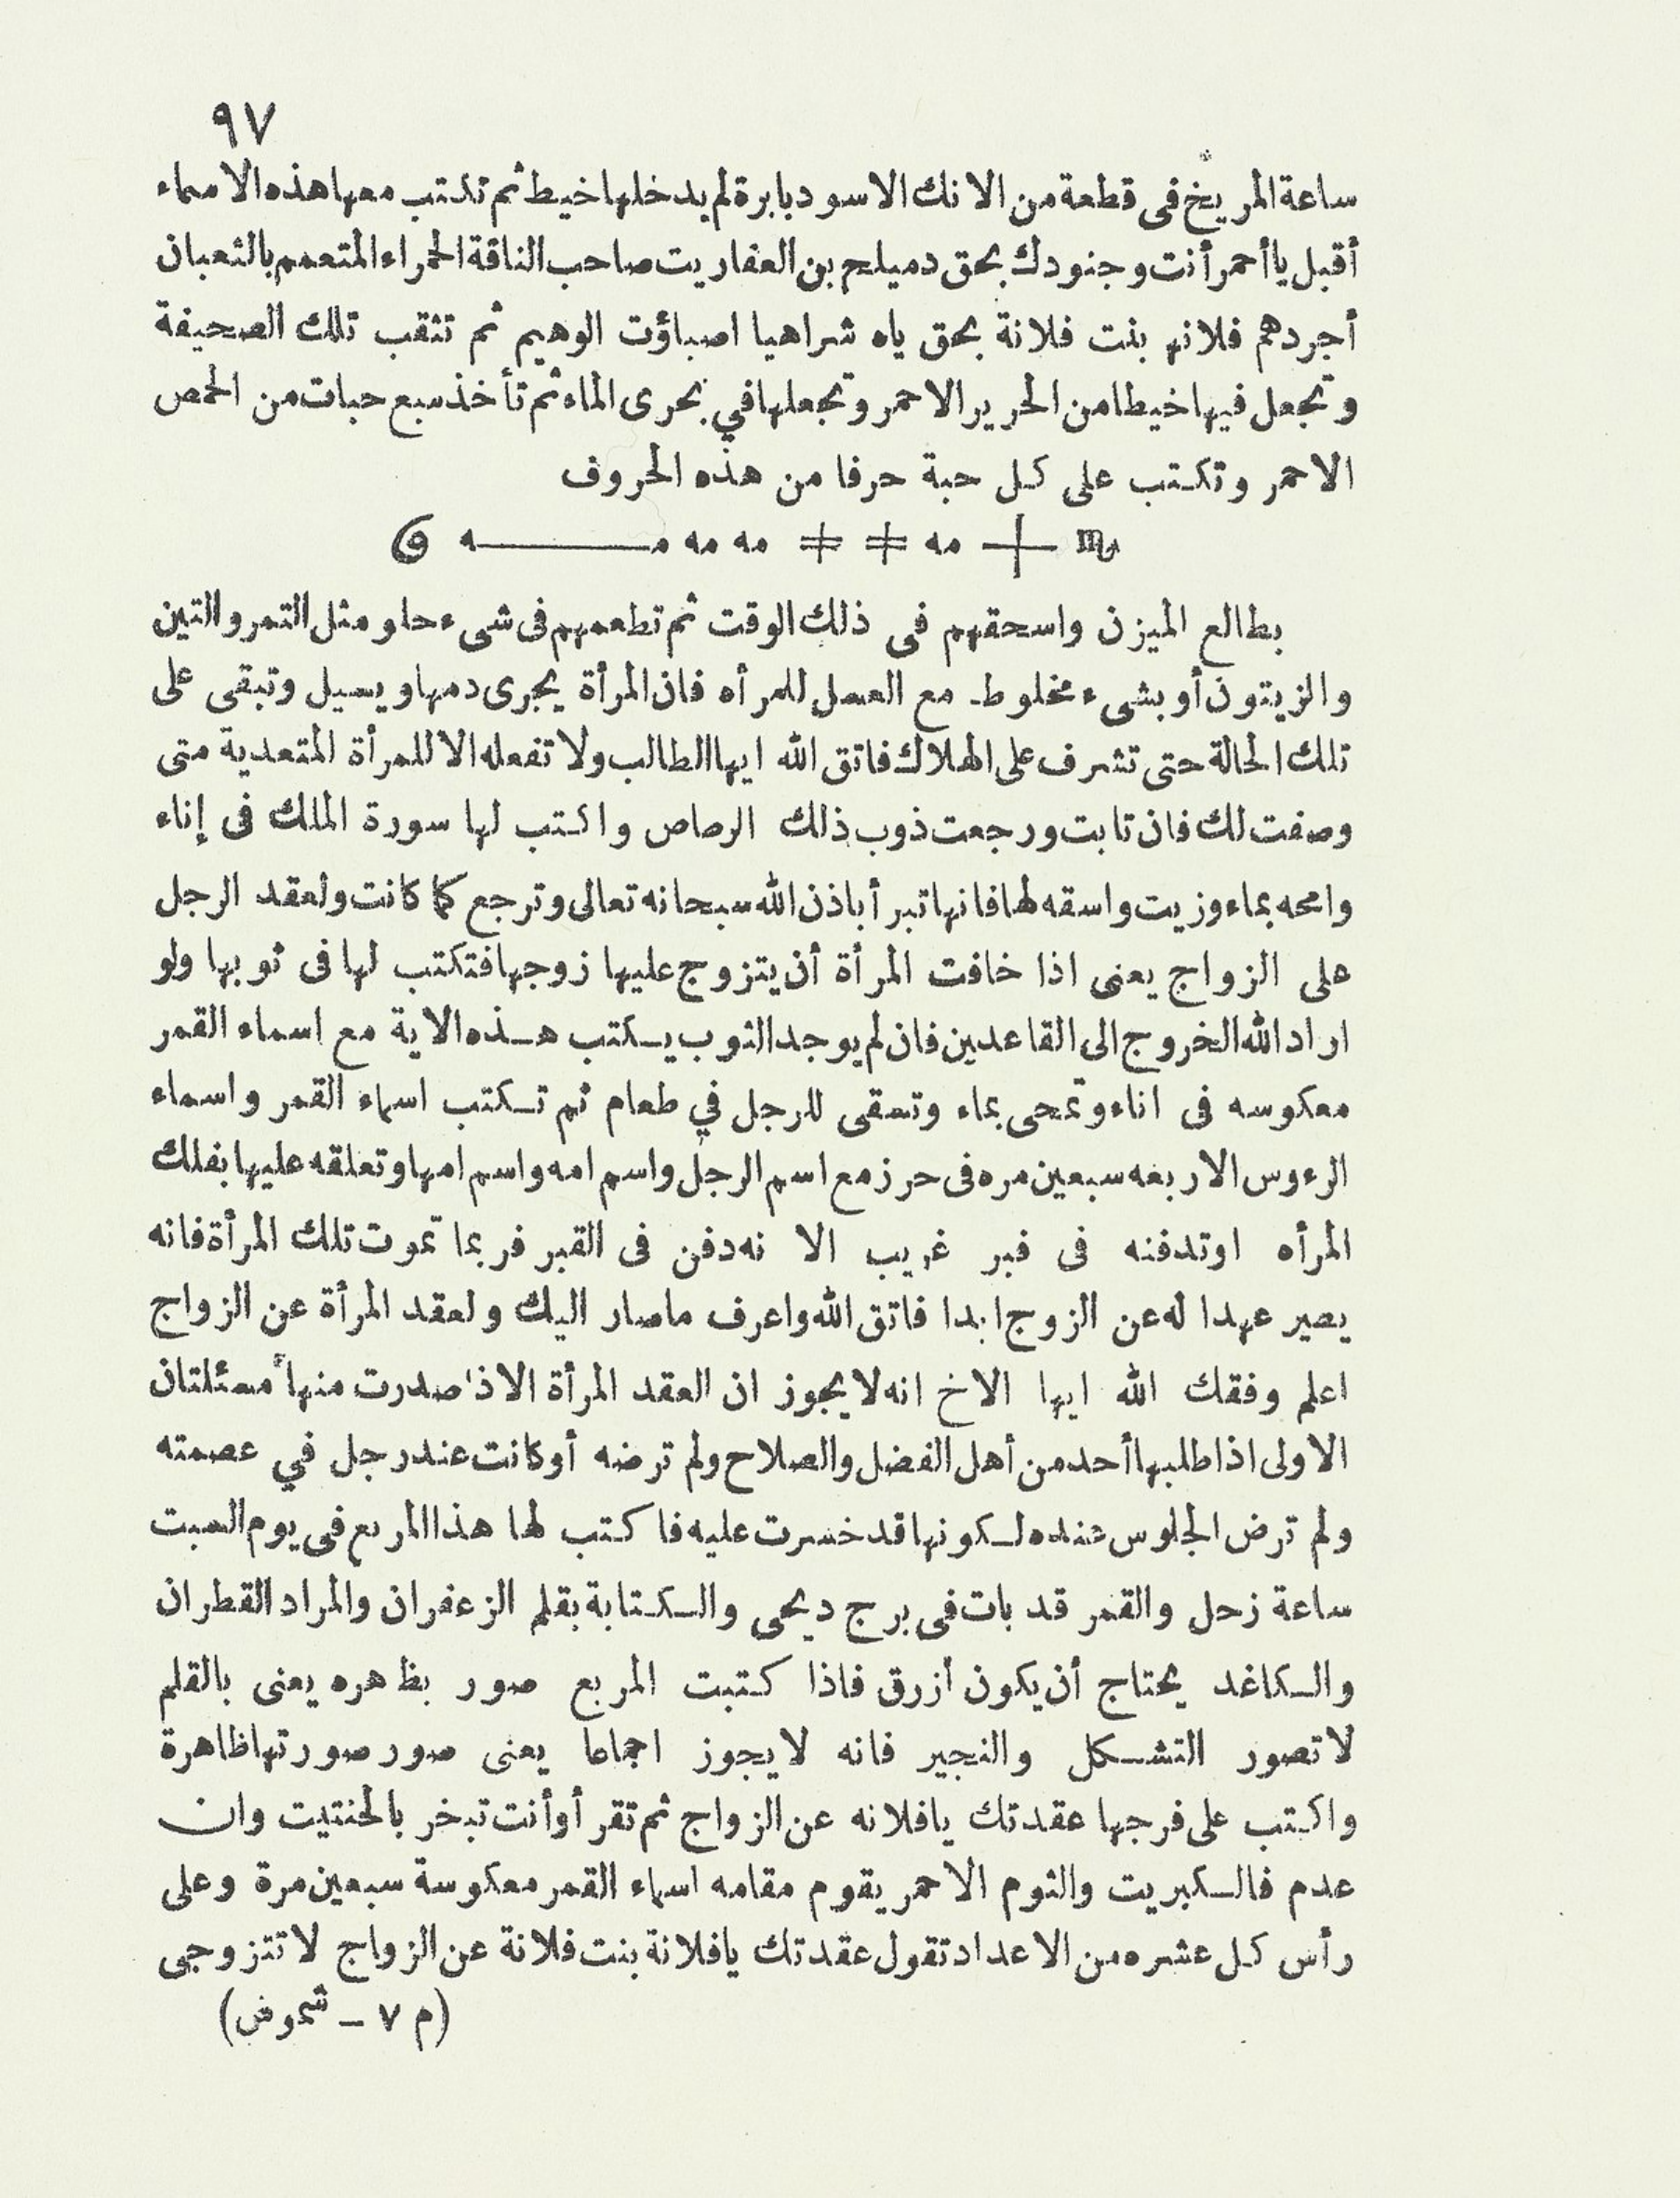 ٩٧
ساعة المريخ فى قطعة من الانك الاسود بابرة لم يدخلها خيط ثم تكتب معها هذه الاسماء
أقبل يا أحمر أنت وجنودك بحق دميلج بن العفاريت صاحب الناقة الحمراء المتعمم بالثعبان
أجردهم فلانه بنت فلانة بحق ياه شراهيا اصباؤت الوهيم ثم تثقب تلك الصحيفة
وتجعل فيها خيطا من الحرير الاحمر وتجعلها في بحرى الماء ثم تأخذ سبع حبات من الحمص
الاحمر وتكتب على كل حبة حرفا من هذه الحروف
♏ + مه ‡ ‡ مه مه مـــــــه
بطالع الميزن واسحقهم فى ذلك الوقت ثم تطعمهم فى شىء حلو مثل التمر والتين
والزيتون أو بشىء مخلوط مع العسل للمرأه فان المرأة يجرى دمها ويسيل وتبقى على
تلك الحالة حتى تشرف على الهلاك فاتق الله ايها الطالب ولا تفعله الا للمرأة المتعدية متى
وصفت لك فان تابت ورجعت ذوب ذلك الرصاص واكتب لها سورة الملك فى إناء
وامحه بماء وزيت واسقه لها فانها تبرأ باذن الله سبحانه تعالى وترجع كما كانت ولعقد الرجل
على الزواج يعنى اذا خافت المرأة أن يتزوج عليها زوجها فتكتب لها فى ثوبها ولو
اراد الله الخروج الى القاعدين فان لم يوجد الثوب يكتب هذه الاية مع اسماء القمر
معكوسه فى اناء وتمحى بماء وتسقى للرجل في طعام ثم تكتب اسماء القمر واسماء
الرءوس الاربعه سبعين مره فى حرز مع اسم الرجل واسم امه واسم امها وتعلقه عليها بفلك
المرأه اوتدفنه فى قبر غريب الا نه دفن فى القبر فربما تموت تلك المرأة فانه
يصير عهدا له عن الزوج ابدا فاتق الله واعرف ماصار اليك ولعقد المرأة عن الزواج
اعلم وفقك الله ايها الاخ انه لا يجوز ان العقد المرأة الا ذا صدرت منها مسئلتان
الاولى اذا طلبها أحد من أهل الفضل والصلاح ولم ترضه أو كانت عند رجل في عصمته
ولم ترض الجلوس عنده لكونها قد خسرت عليه فاكتب لها هذا المربع فى يوم السبت
ساعة زحل والقمر قد بات فى برج ديحى والكتابة بقلم الزعفران والمراد القطران
والكاغد يحتاج أن يكون أزرق فاذا كتبت المربع صور بظهره يعنى بالقلم
لا تصور التشكل والنجير فانه لا يجوز اجماعا يعنى صور صورتها ظاهرة
واكتب على فرجها عقدتك يا فلانه عن الزواج ثم تقرأ وأنت تبخر بالحنتيت وان
عدم فالكبريت والثوم الاحمر يقوم مقامه اسماء القمر معكوسة سبعين مرة وعلى
رأس كل عشره من الاعداد تقول عقدتك يا فلانة بنت فلانة عن الزواج لا تتزوجى
(م ٧ – شموض)